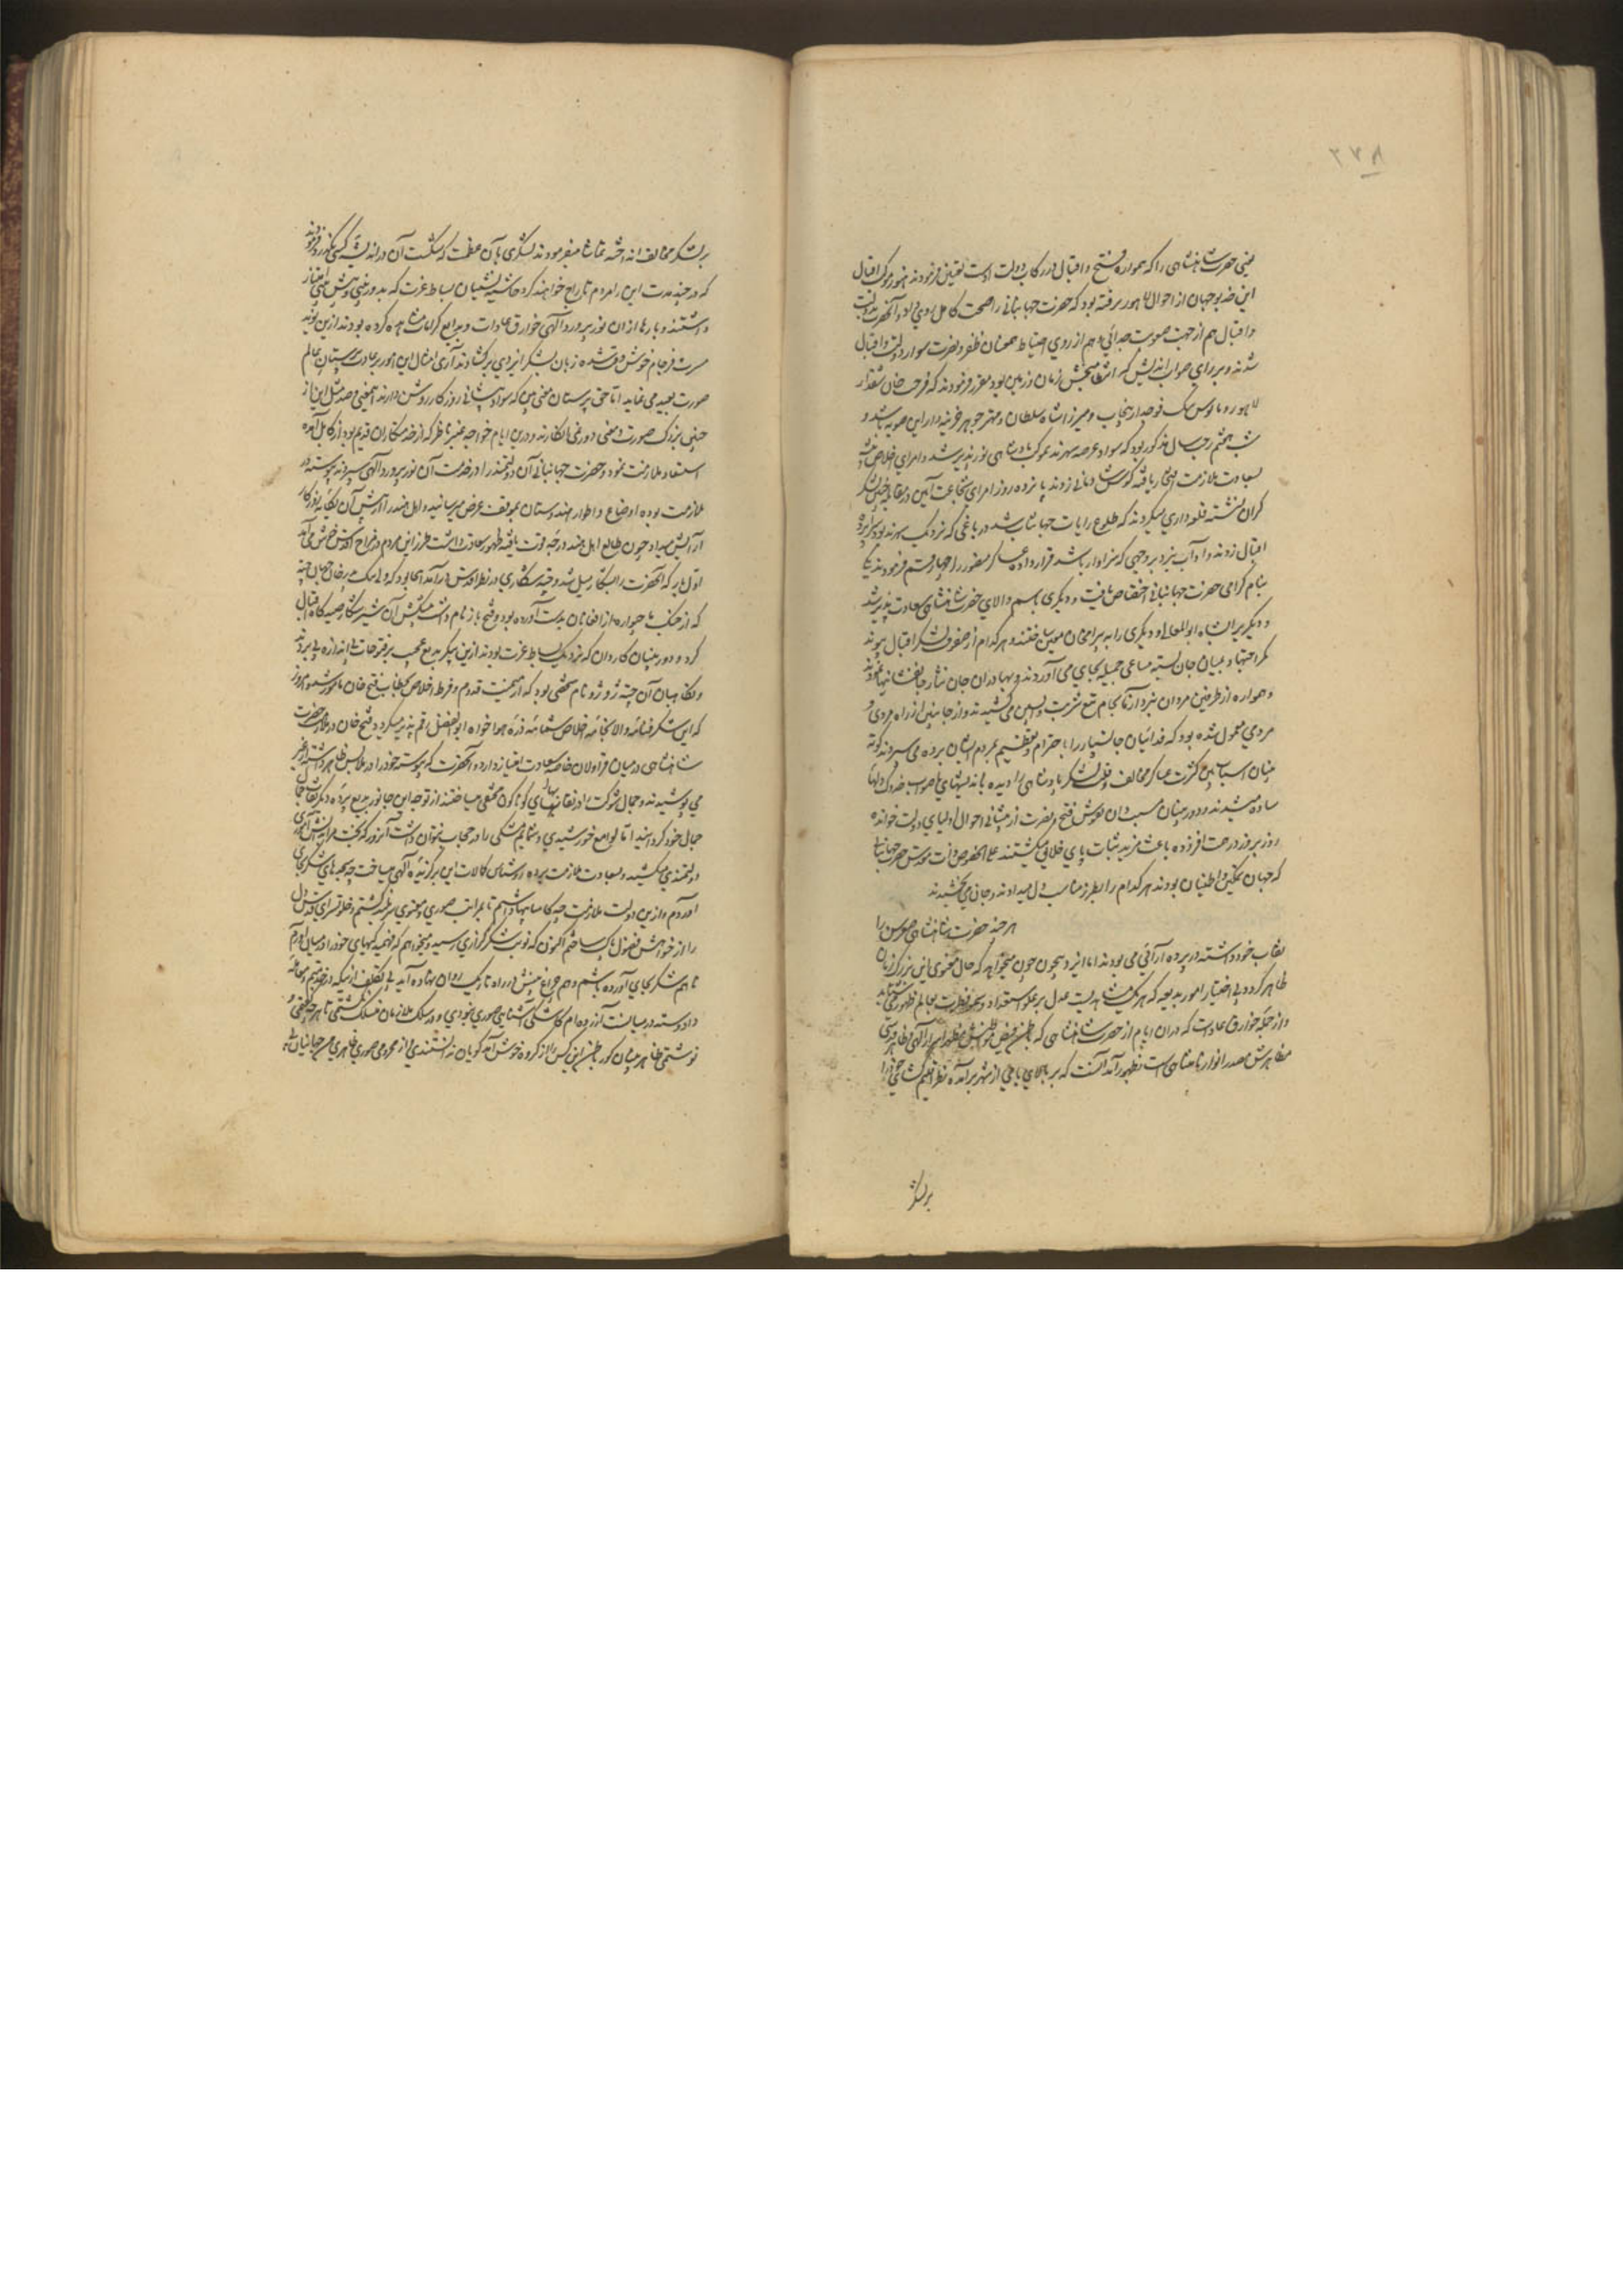 ۲۷۸
یعنی حضرت شاهنشاهی را که همواره فتح و اقبال در رکاب دولت اوست تعیین فرمودند هنوز موکب اقبال
این خدیو جهان از احوال لاهور نرفته بود که حضرت جهانبانی را صحت کامل روی داد و آنحضرت بدولت
و اقبال هم از جهت صعوبت جدائی و هم از روی احتیاط همعنان ظفر و نصرت سوار دولت و اقبال
شدند و برای صواب اندیش که انتظام بخش زمان و زمین بود مقرر فرمودند که فرحت خان شقدار
لاهور و مابوس بیک فوجدار پنجاب و میرزا شاه سلطان و مهتر جوهر خزینه دار این صوبه باشد و
شب هفتم رجب سال مذکور بود که سواد عرصه سهرند بموکب پادشاهی نورپذیر شد و امرای اخلاص
بسعادت ملازمت افتخار یافته کوس شادمانی زدند پانزده روز امرای شجاعت آیین در مقابل چنین لشکر
گران نشسته قلعه داری میکردند که طلوع رایات جهانتاب شد در باغی که نزدیک سهرند بود سراپرده
اقبال زدند و آداب نبرد بر وجهی که سزاوار باشد قرار داده عساکر منصور را چهار قسم فرمودند یکی
بنام گرامی حضرت جهانبانی اختصاص یافت و دیگری باسم والای حضرت شاهنشاهی سعادت پذیر شد
و دیگر بر شاه ابوالمعالی و دیگری را به بیرامخان معین ساختند و هر کدام از صفوف لشکر اقبال پیوند
کمر اجتهاد بمیان جان بسته مساعی جمیله بجای می آوردند و بهادران جان نثار جانفشانیها نمودند
و همواره از طرفین مردان نبرد آزما بجام تیغ شربت واپسین می کشیدند و از جانبین از راه مردی و
مردمی معمول شده بود که فدائیان جانسپار را باحترام و تعظیم بمردم ایشان برده می سپردند کوته
بینان اسباب بین کثرت عساکر مخالف و قلت لشکر پادشاهی را دیده باندیشهای ناصواب خدوک دلها
ساده میشدند و دوربینان مسبب دان نقوش فتح و نصرت از پیشانی احوال اولیای دولت خوانده
روز بروز در همت افزوده باعث مزید ثبات پای خلایق میگشتند علی الخصوص ذات قدسی حضرت جهانبانی
که جهان تمکین و اطمینان بودند هر کدام را بطرز مناسب دل میدادند و جانی می بخشیدند
هر چند حضرت شاهنشاهی صورت را
نقاب خود داشته در پرده آرائی می بودند اما ایزد بیچون چون میخواهد که حال معنوی این بزرگ زمان
ظاهر گردد بی اختیار امور بدیعه که هر یک شاهدیست عدل بر علو استعداد و سمو فطرت بعالم ظهور می شتابد
و از جمله خوارق عادات که در آن ایام از حضرت شاهنشاهی که باطن فیض مواطنش مظهر اسرار الهی و ظاهر قدسی
مظاهرش مصدر انوار نامتناهی است بظهور آمد آنست که بر بالای بامی از شهر برآمده نظر اقلیم گشای خود را
بر لشکر
بر لشکر مخالف انداخته تماشا میفرمودند لشکری بآن عظمت که شکست آن در اندیشه کسی نگذرد فرمودند
که در چند مدت این را مردم تاراج خواهند کرد حاشیه نشینان بساط عزت که بدوربینی و هوش امتیاز
داشتند و بارها از آن نور پرورد الهی خوارق عادات و بدایع کرامات مشاهده کرده بودند از این نوید
مسرت فرجام خوشوقت شده زبان بشکر ایزدی برگشادند آری امثال این امور بر عادت پرستان عالم
صورت بعید می نماید اما حق پرستان معنی بین که سواد پیشانی روزگار روشن دارند اینمعنی و صد مثل این از
چنین بزرگ صورت و معنی دور نمی انگارند و درین ایام خواجه عنبر ناظر که از خدمتکاران قدیم بود از کابل آمده
استسعاد ملازمت نمود و حضرت جهانبانی آن دولتمند را در خدمت آن نور پرورد الهی سپردند پیوسته در
ملازمت بوده اوضاع و اطوار هندوستان بموقف عرض میرسانید و اهل هند را آرزش آن یگانه روزگار
آرایش میداد چون طالع اهل هند درجه قوت یافته ظهور سعادت داشت طرز این مردم در مزاج اقدس خوش می آمد
اول بار که آنحضرت را بشکار میل شد و چیته شکاری در نظر اقدس درآمد آنجا بود که ولی بیک پدر خان جهان چیته
که از جنگ ماچهواره از افغانان بدست آورده بود و فتح باز نام داشت پیشکش آن شیر شکار صیدگاه اقبال
کرد و دوربینان کاردان که نزدیک بساط عزت بودند ازین پیکر بدیع عجیب بر فتوحات بی اندازه پی بردند
و نگاهبان آن چیته دوندو نام شخصی بود که از میمنت قدم و فرط اخلاص بخطاب فتح خان نامور شد و امروز
که این شگرفنامه والا بخامه اخلاص شمامه ذره هواخواه ابوالفضل رقم پذیر میگردد فتح خان در ملازمت حضرت
شاهنشاهی در میان قراولان خاصه سعادت امتیاز دارد و آنحضرت که پیوسته خود را در ملابس ظاهر داشته از غیر
می پوشیدند و جمال شوکت را در نقابهای گوناگون مختفی میساختند از توجه این جانور بدیع پرده دیگر نقاب جمال
جمال خود گردانیدند اما لوامع خورشیدی و شمایم مشکی را در حجاب نتوان داشت
دولتمندی میکشید و بسعادت ملازمت برده روشناس کمالات این برگزیده الهی میساخت چه سجدهای شکر بجای
آوردم و ازین دولت ملازمت چه کامیابیها داشتم تا بمراتب صوری و معنوی سربلند گشتم و خلوتسرای قدس دل
را از خواهش فضول پاک ساختم اکنون که نوبت شکرگزاری رسید و میخواهم که فهمیدگیهای خود را در میان آورم
تا هم شکر بجای آورده باشم و هم چراغ بینش در راه تاریک روان نهاده آید بی تکلف ازینکه در خدمتم و معامله
داد و ستد در میانست آزرده ام کاشکی آشنایی صوری نبودی و در سلک ملازمان منسلک نگشتمی تا هر چه گفتمی و
نوشتمی ظاهر بینان کور باطن این کس را از گروه خوش آمد گویان ندانستندی و از محرومی صوری ظاهری من جهانیان